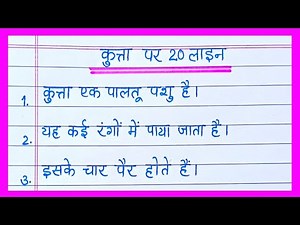 कुत्ता पर 20 लाइन
1. कुत्ता एक पालतू पशु है।
2. यह कई रंगों में पाया जाता है।
3. इसके चार पैर होते हैं।